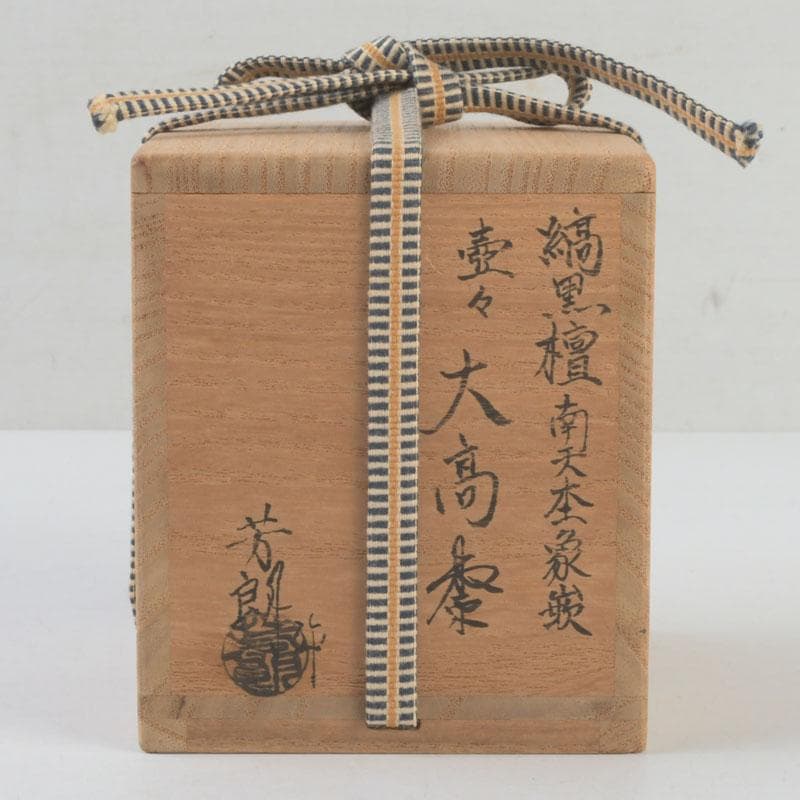 縞黒檀南天杢象嵌
壺々 大高棗
芳朗